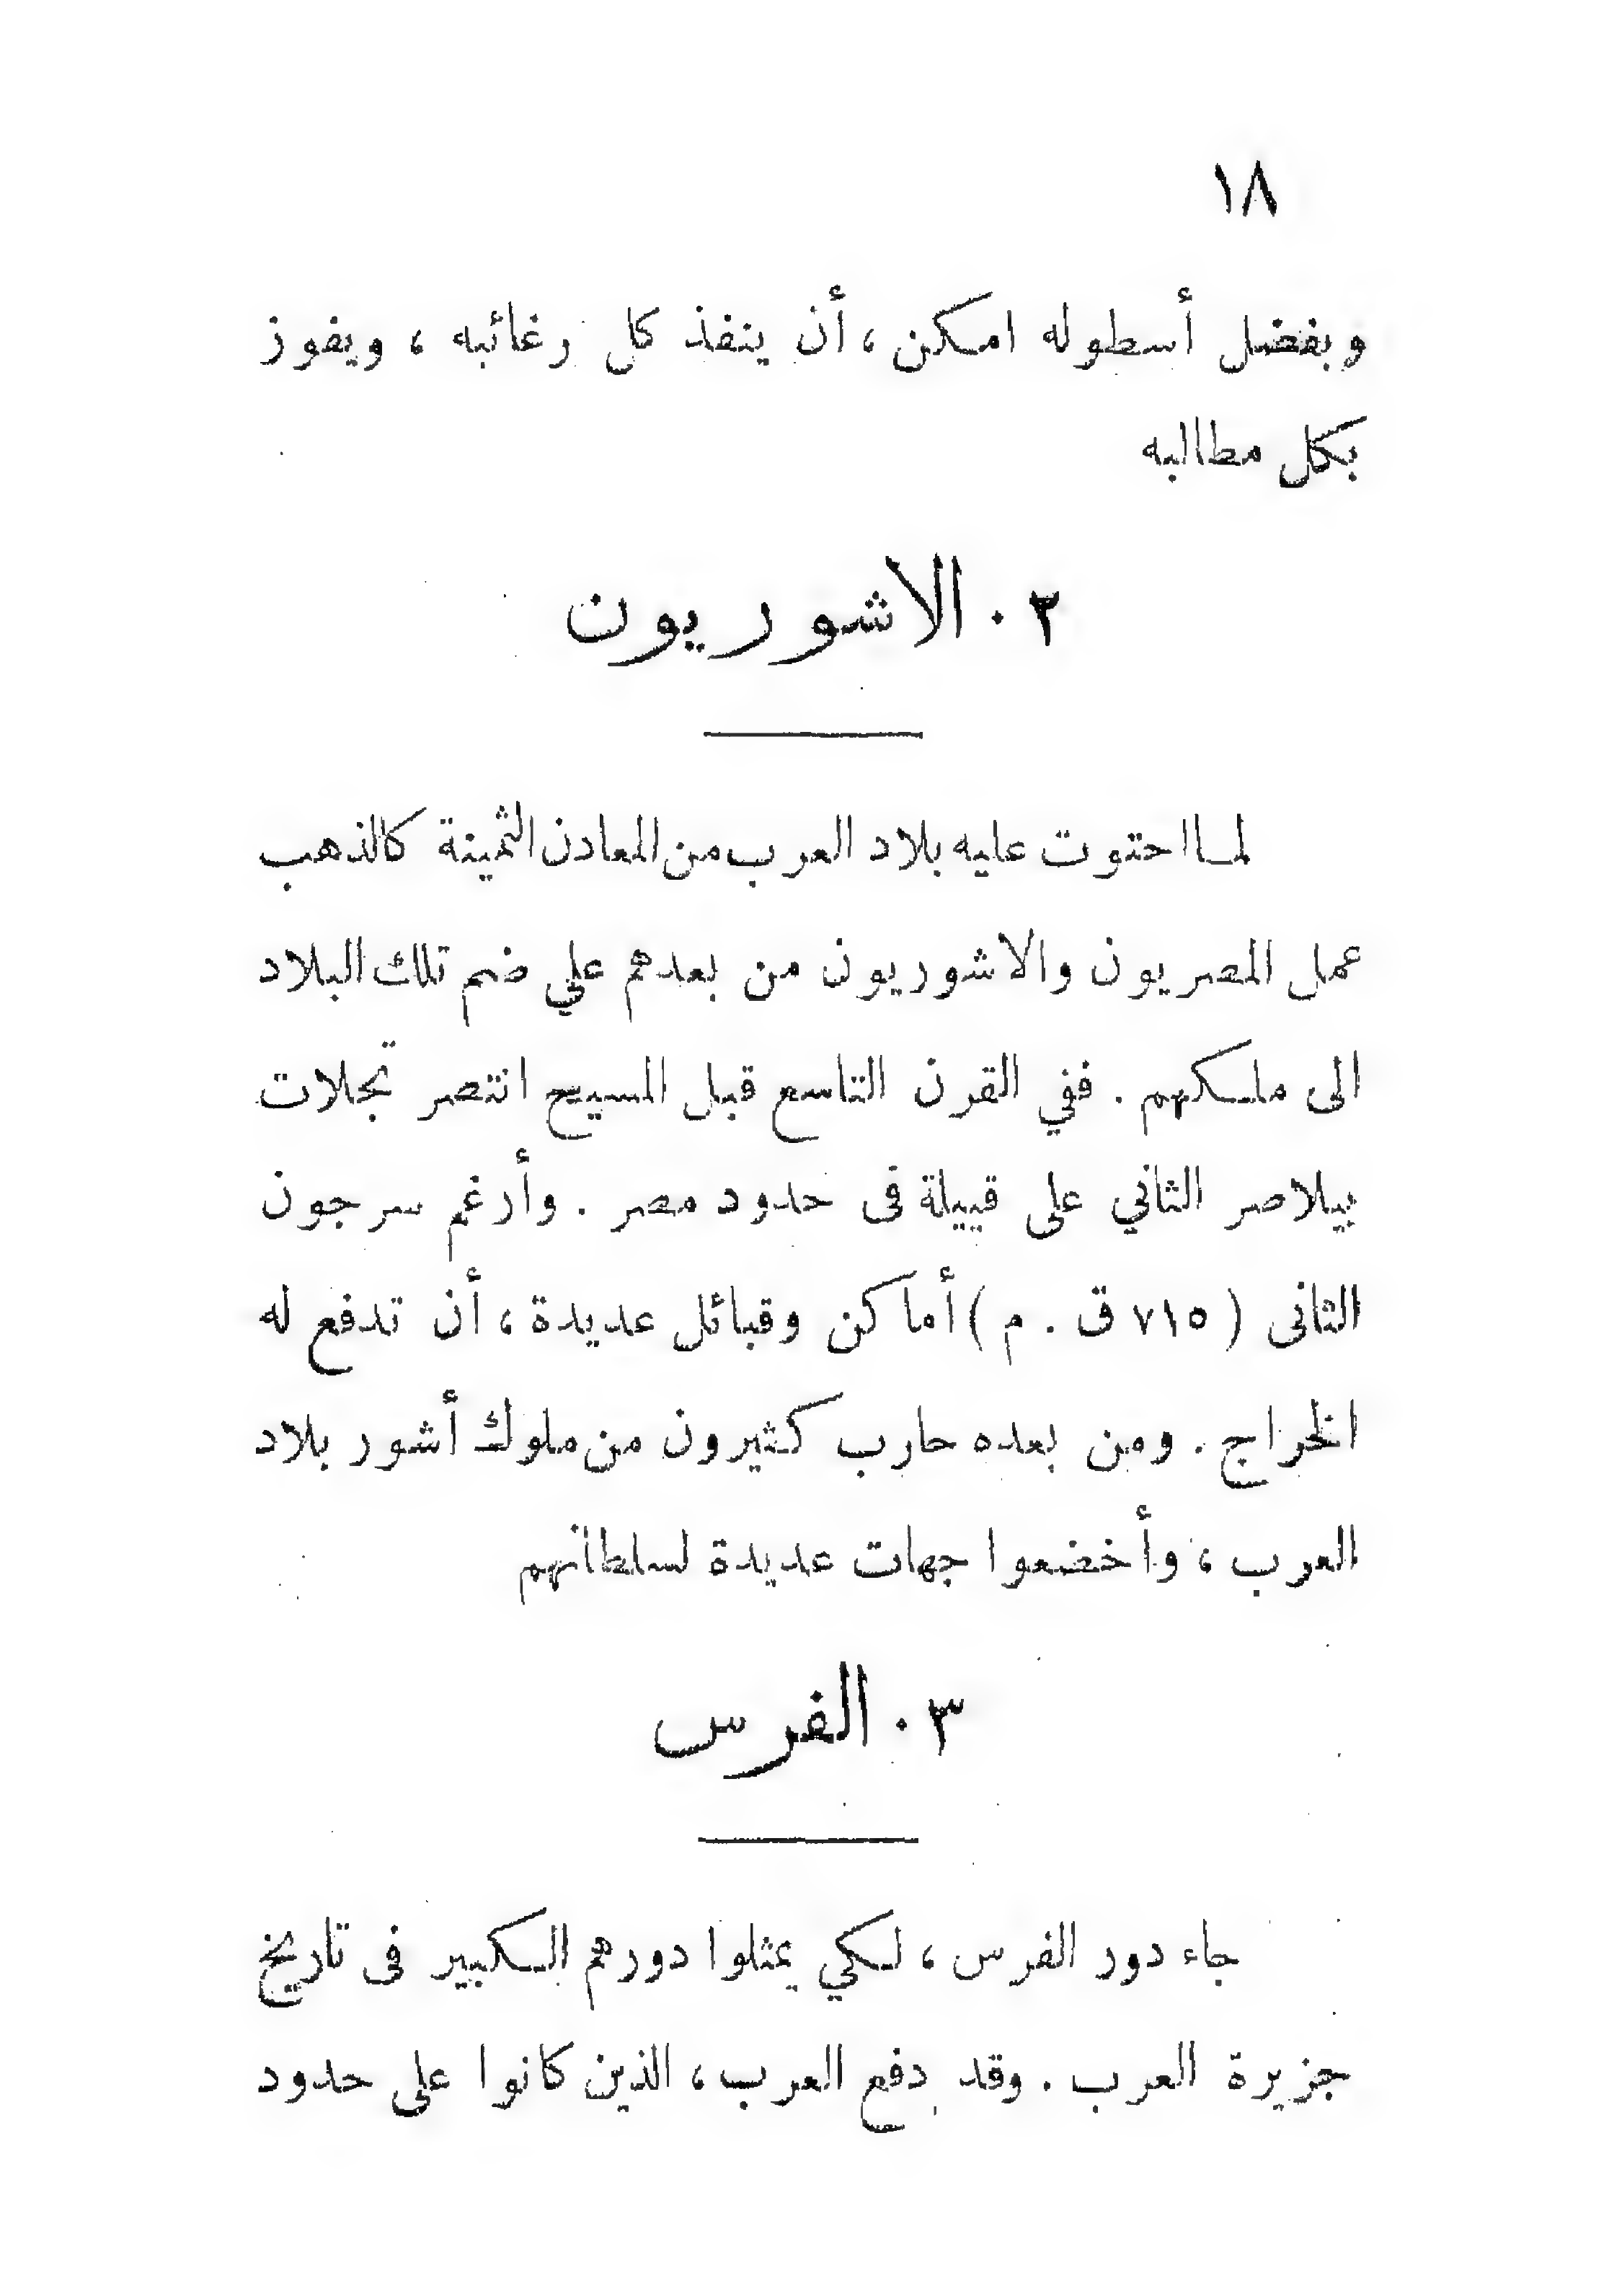 ١٨
وبفضل أسطوله امكن ، أن ينفذ كل رغائبه ، ويفوز
بكل مطالبه
٢ . الاشوريون
لما احتوت عليه بلاد العرب من المعادن الثمينة كالذهب
عمل المصريون والاشوريون من بعدهم علي ضم تلك البلاد
الى ملكهم . ففي القرن التاسع قبل المسيح انتصر تجلات
بيلاصر الثاني على قبيلة فى حدود مصر . وأرغم سرجون
الثانى ( ٧١٥ ق . م ) أماكن وقبائل عديدة ، أن تدفع له
الخراج . ومن بعده حارب كثيرون من ملوك أشور بلاد
العرب ، وأخضعوا جهات عديدة لسلطانهم
٣ . الفرس
جاء دور الفرس ، لكي يمثلوا دورهم الكبير فى تاريخ
جزيرة العرب . وقد دفع العرب ، الذين كانوا على حدود